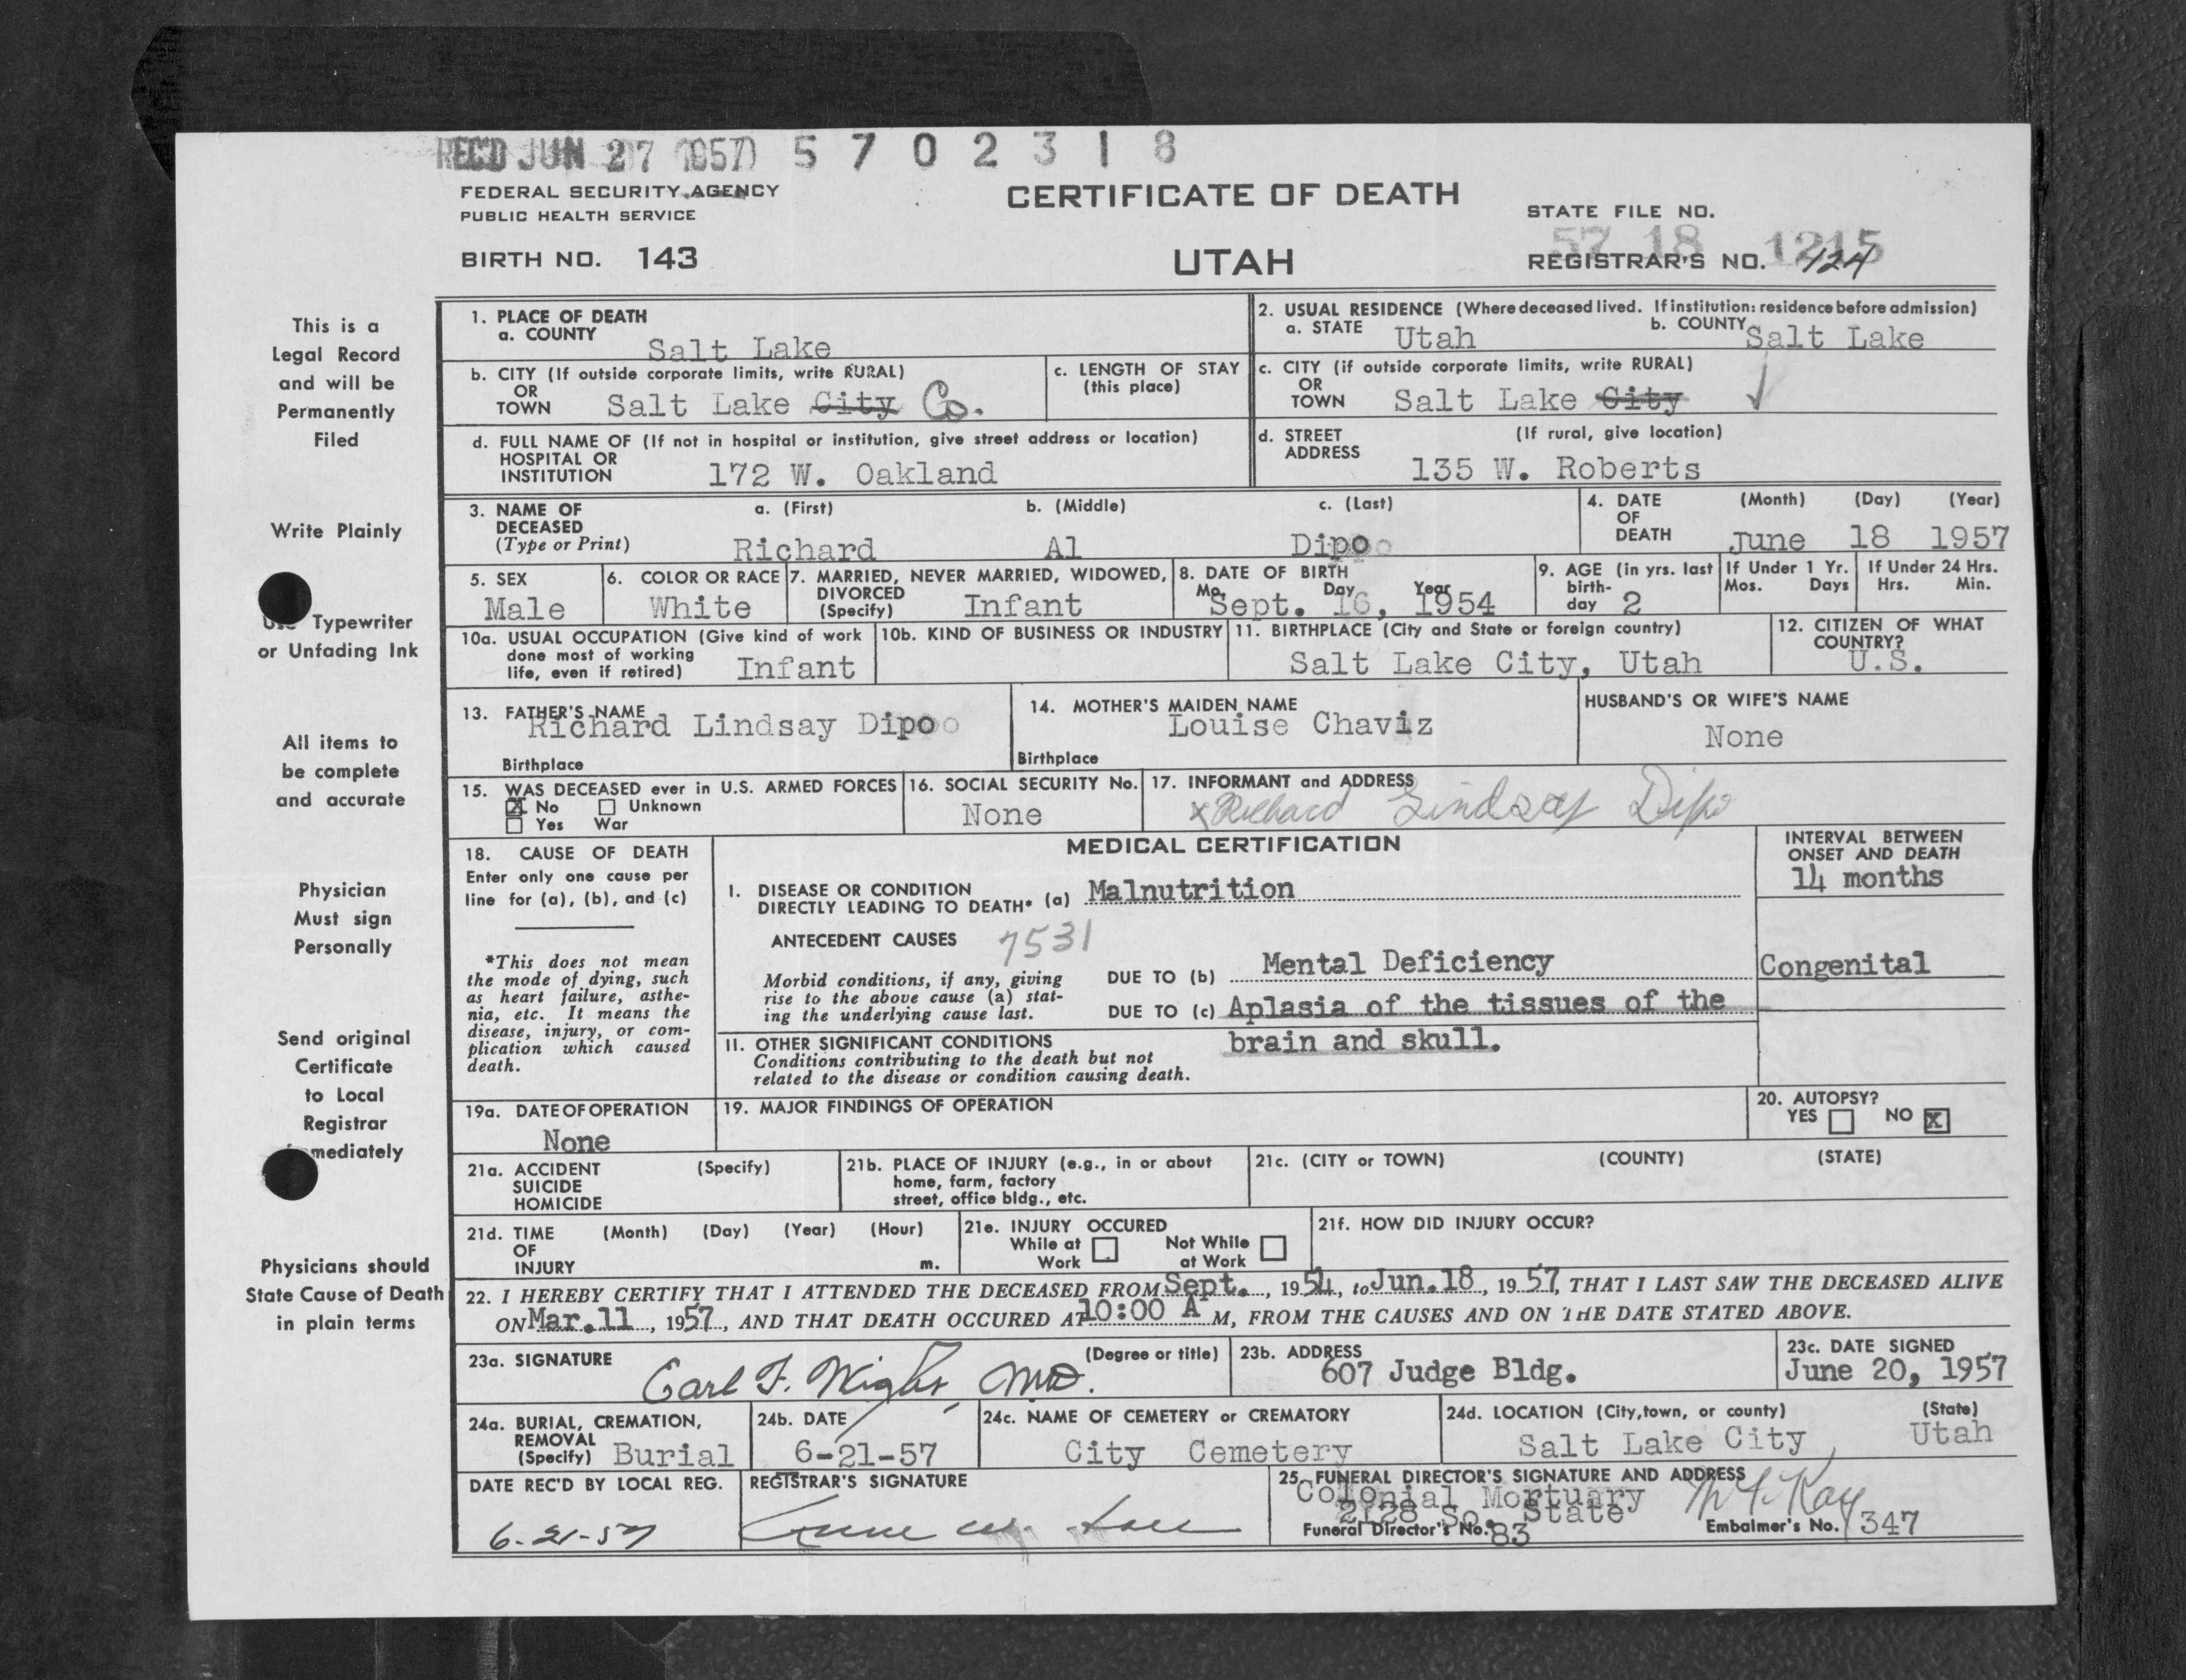 REC'D JUN 27 1957 5702318
FEDERAL SECURITY AGENCY
PUBLIC HEALTH SERVICE
CERTIFICATE OF DEATH
STATE FILE NO.
57 18 1215
BIRTH NO. 143
UTAH
REGISTRAR'S NO. 424
This is a
Legal Record
and will be
Permanently
Filed
Write Plainly
Use Typewriter
or Unfading Ink
All items to
be complete
and accurate
Physician
Must sign
Personally
Send original
Certificate
to Local
Registrar
mediately
Physicians should
State Cause of Death
in plain terms
1. PLACE OF DEATH
a. COUNTY Salt Lake
2. USUAL RESIDENCE (Where deceased lived. If institution: residence before admission)
a. STATE Utah b. COUNTY Salt Lake
b. CITY (If outside corporate limits, write RURAL)
OR
TOWN Salt Lake City Co.
c. LENGTH OF STAY
(this place)
c. CITY (if outside corporate limits, write RURAL)
OR
TOWN Salt Lake City
d. FULL NAME OF (If not in hospital or institution, give street address or location)
HOSPITAL OR
INSTITUTION 172 W. Oakland
d. STREET (If rural, give location)
ADDRESS 135 W. Roberts
3. NAME OF a. (First) b. (Middle) c. (Last)
DECEASED
(Type or Print) Richard Al Dipo
4. DATE (Month) (Day) (Year)
OF
DEATH June 18 1957
5. SEX
Male
6. COLOR OR RACE
White
7. MARRIED, NEVER MARRIED, WIDOWED,
DIVORCED
(Specify) Infant
8. DATE OF BIRTH
Mo. Day Year
Sept. 16, 1954
9. AGE (in yrs. last
birth-
day 2
If Under 1 Yr.
Mos. Days
If Under 24 Hrs.
Hrs. Min.
10a. USUAL OCCUPATION (Give kind of work
done most of working
life, even if retired) Infant
10b. KIND OF BUSINESS OR INDUSTRY
11. BIRTHPLACE (City and State or foreign country)
Salt Lake City, Utah
12. CITIZEN OF WHAT
COUNTRY?
U.S.
13. FATHER'S NAME
Richard Lindsay Dipo
Birthplace
14. MOTHER'S MAIDEN NAME
Louise Chaviz
Birthplace
HUSBAND'S OR WIFE'S NAME
None
15. WAS DECEASED ever in U.S. ARMED FORCES
X No Unknown
Yes War
16. SOCIAL SECURITY No.
None
17. INFORMANT and ADDRESS
x Richard Lindsay Dipo
18. CAUSE OF DEATH
Enter only one cause per
line for (a), (b), and (c)
*This does not mean
the mode of dying, such
as heart failure, asthe-
nia, etc. It means the
disease, injury, or com-
plication which caused
death.
MEDICAL CERTIFICATION
INTERVAL BETWEEN
ONSET AND DEATH
I. DISEASE OR CONDITION
DIRECTLY LEADING TO DEATH* (a) Malnutrition 14 months
ANTECEDENT CAUSES 7531
Morbid conditions, if any, giving
rise to the above cause (a) stat-
ing the underlying cause last.
DUE TO (b) Mental Deficiency Congenital
DUE TO (c) Aplasia of the tissues of the
brain and skull.
II. OTHER SIGNIFICANT CONDITIONS
Conditions contributing to the death but not
related to the disease or condition causing death.
19a. DATE OF OPERATION
None
19. MAJOR FINDINGS OF OPERATION
20. AUTOPSY?
YES NO X
21a. ACCIDENT (Specify)
SUICIDE
HOMICIDE
21b. PLACE OF INJURY (e.g., in or about
home, farm, factory
street, office bldg., etc.
21c. (CITY or TOWN) (COUNTY) (STATE)
21d. TIME (Month) (Day) (Year) (Hour)
OF
INJURY m.
21e. INJURY OCCURED
While at Not While
Work at Work
21f. HOW DID INJURY OCCUR?
22. I HEREBY CERTIFY THAT I ATTENDED THE DECEASED FROM Sept., 1954, to Jun. 18, 1957, THAT I LAST SAW THE DECEASED ALIVE
ON Mar. 11, 1957, AND THAT DEATH OCCURED AT 10:00 A M, FROM THE CAUSES AND ON THE DATE STATED ABOVE.
23a. SIGNATURE (Degree or title)
Earl F. Wight, MD.
23b. ADDRESS
607 Judge Bldg.
23c. DATE SIGNED
June 20, 1957
24a. BURIAL, CREMATION,
REMOVAL
(Specify) Burial
24b. DATE
6-21-57
24c. NAME OF CEMETERY or CREMATORY
City Cemetery
24d. LOCATION (City, town, or county) (State)
Salt Lake City, Utah
DATE REC'D BY LOCAL REG.
6-21-57
REGISTRAR'S SIGNATURE
25. FUNERAL DIRECTOR'S SIGNATURE AND ADDRESS
Colonial Mortuary
2128 So. State
Funeral Director's No. 83 Embalmer's No. 347